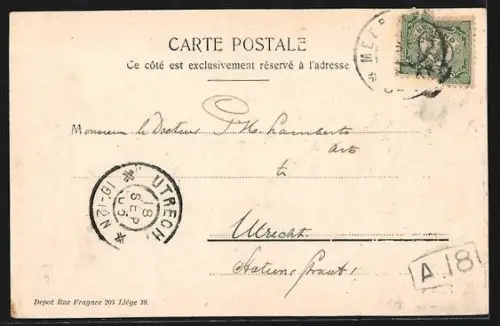 CARTE POSTALE
Ce côté est exclusivement réservé à l'adresse
MEER
Monsieur le Docteur P.H. Lamberts
Arts
te
Utrecht
UTRECH
18 SEP 05
10-12 N
A 18
Depot Rue Fragnée 204 Liége 10.